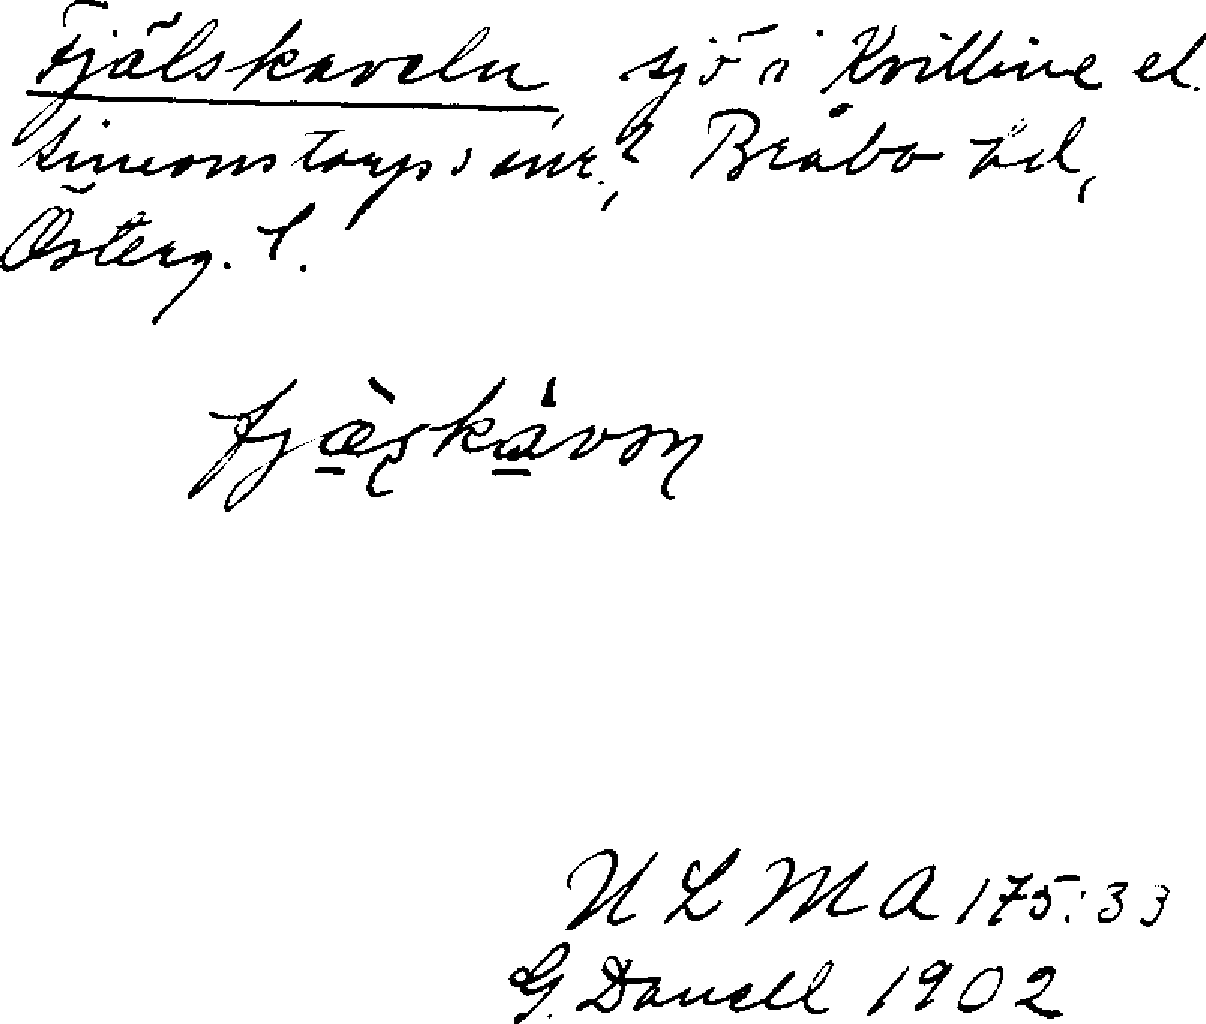 Fjälskaveln, sjö i Kvillinge el.
Simonstorps snr.?, Bråbo hd,
Österg. l.
fjæ̀skávən
U L M A 175:33
G. Danell 1902